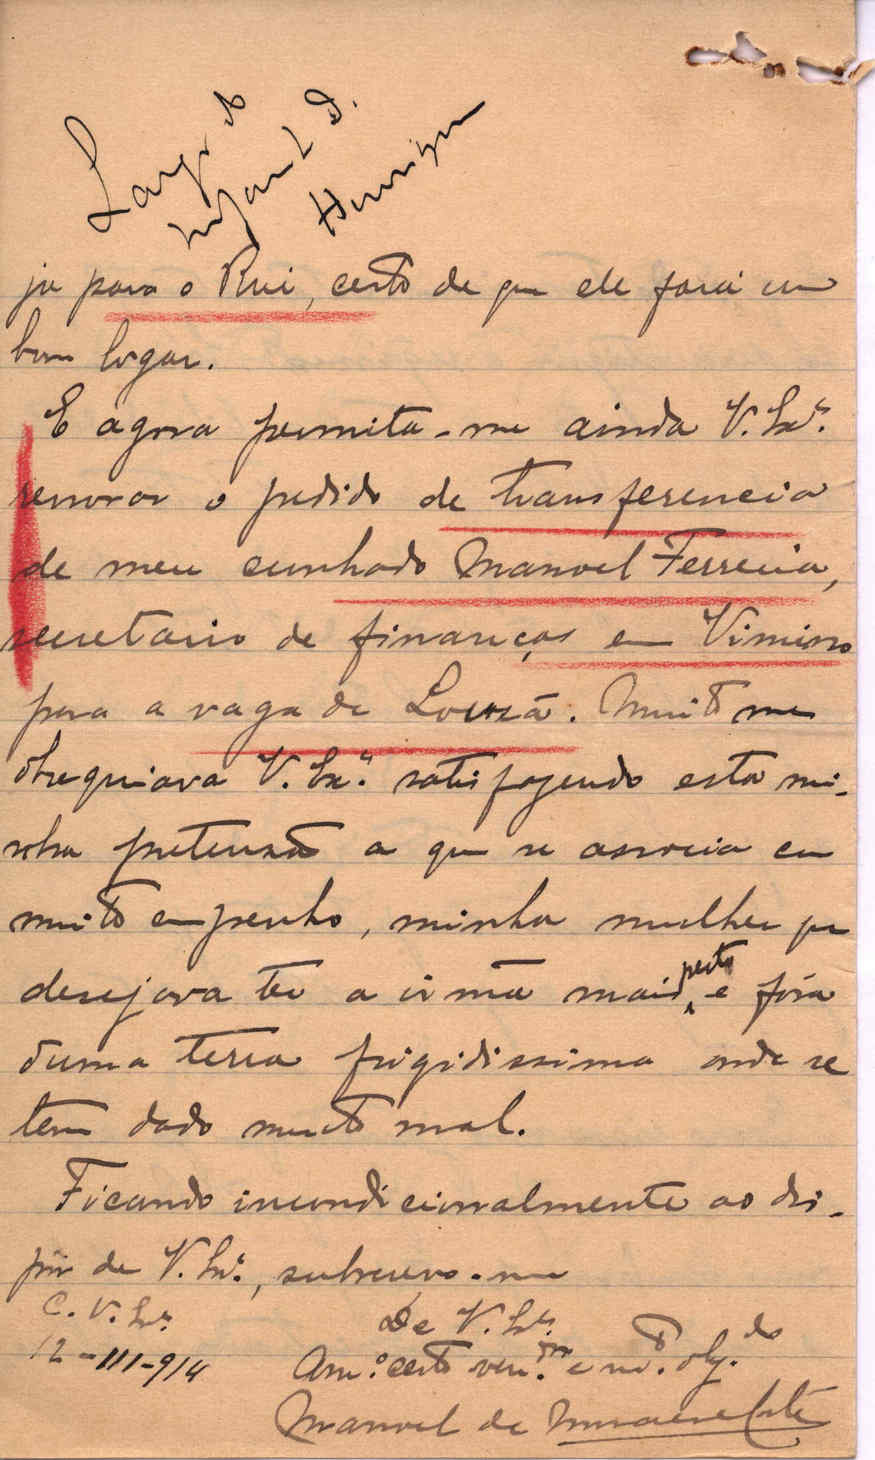 Largo do
Infante D.
Henrique
ja para o Rui, certo de que ele fará um
bom logar.
E agora permita-me ainda V. Ex.ª
renovar o pedido de transferencia
de meu cunhado Manoel Ferreira,
secretario de finanças em Vimioso
para a vaga de Louzã. Muito me
obsequiava V. Ex.ª satisfazendo esta mi-
nha pretensão a que se associa com
muito empenho, minha mulher que
desejava ter a irmã mais perto e fóra
duma terra frigidissima onde se
tem dado muito mal.
Ficando incondicionalmente ao dis-
pôr de V. Ex.ª, subscrevo-me
C. V. Ex.ª
De V. Ex.ª
12-III-914
Am.º certo ven.dor e m.to obg.do
Manoel de